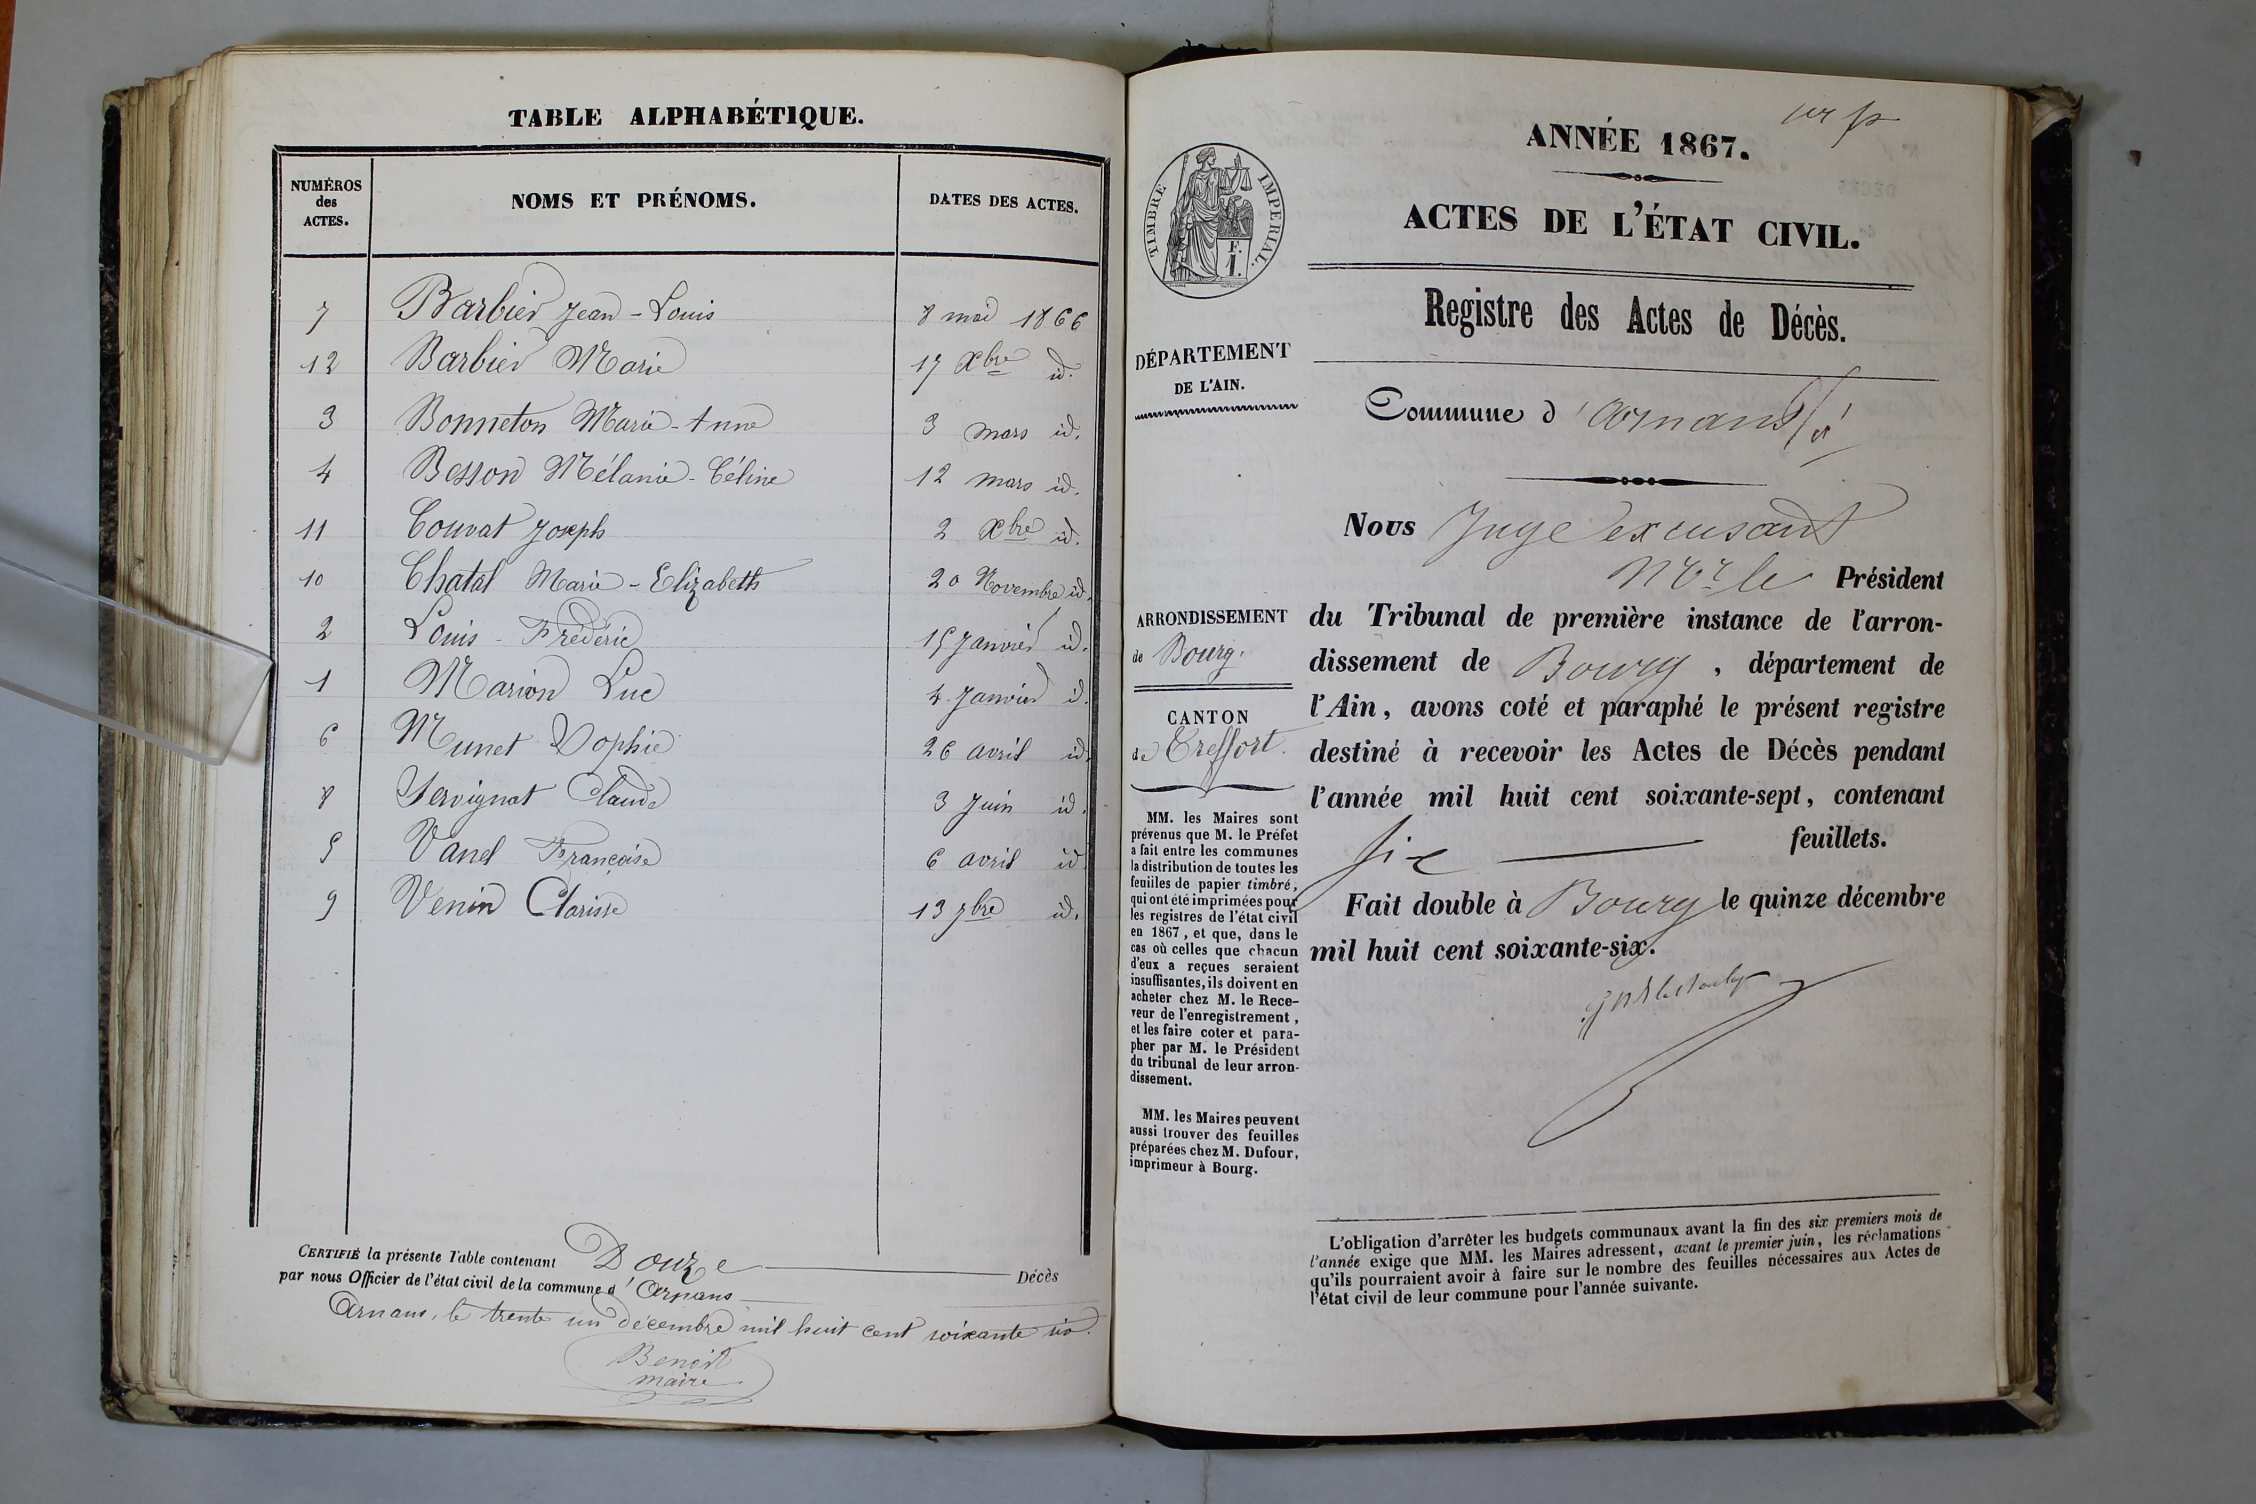 TABLE ALPHABÉTIQUE.
NUMÉROS des ACTES. NOMS ET PRÉNOMS. DATES DES ACTES.
7 Barbier Jean-Louis 8 mai 1866
12 Barbier Marie 17 Xbre id.
3 Bonneton Marie-Anne 3 mars id.
4 Besson Mélanie-Céline 12 mars id.
11 Couvat Joseph 2 Xbre id.
10 Chatal Marie-Elizabeth 20 Novembre id.
2 Louis Frédéric 15 Janvier id.
1 Marion Luc 4 Janvier id.
6 Munet Sophie 26 avril id.
8 Servignat Claude 3 Juin id.
5 Vanel Françoise 6 avril id
9 Venin Clarisse 13 7bre id.
CERTIFIÉ la présente Table contenant Douze Décès
par nous Officier de l'état civil de la commune d'Arnans
Arnans, le trente un décembre mil huit cent soixante six.
Benoit
maire
ANNÉE 1867.
ACTES DE L'ÉTAT CIVIL.
TIMBRE IMPERIAL.
F.
1.
Registre des Actes de Décès.
DÉPARTEMENT
DE L'AIN.
Commune d'Arnans
Nous Juge excusant
Mr le Président
ARRONDISSEMENT
de Bourg.
CANTON
de Treffort.
du Tribunal de première instance de l'arron-
dissement de Bourg, département de
l'Ain, avons coté et paraphé le présent registre
destiné à recevoir les Actes de Décès pendant
l'année mil huit cent soixante-sept, contenant
six feuillets.
Fait double à Bourg le quinze décembre
mil huit cent soixante-six.
MM. les Maires sont
prévenus que M. le Préfet
a fait entre les communes
la distribution de toutes les
feuilles de papier timbré,
qui ont été imprimées pour
les registres de l'état civil
en 1867, et que, dans le
cas où celles que chacun
d'eux a reçues seraient
insuffisantes, ils doivent en
acheter chez M. le Rece-
veur de l'enregistrement,
et les faire coter et para-
pher par M. le Président
du tribunal de leur arron-
dissement.
MM. les Maires peuvent
aussi trouver des feuilles
préparées chez M. Dufour,
imprimeur à Bourg.
L'obligation d'arrêter les budgets communaux avant la fin des six premiers mois de
l'année exige que MM. les Maires adressent, avant le premier juin, les réclamations
qu'ils pourraient avoir à faire sur le nombre des feuilles nécessaires aux Actes de
l'état civil de leur commune pour l'année suivante.